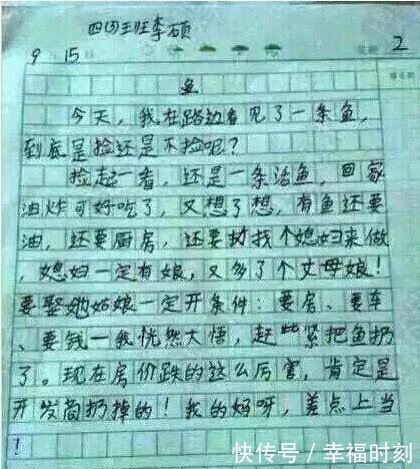 四(3)班李硕
9月15日 星期 2
鱼
今天，我在路边看见了一条鱼，
到底是捡还是不捡呢？
捡起一看，还是一条活鱼，回家
油炸可好吃了，又想了想，有鱼还要
油，还要厨房，还要找个媳妇来做
，媳妇一定有娘，又多了个丈母娘！
要娶她姑娘一定开条件：要房、要车
、要钱一我恍然大悟，赶紧把鱼扔
了。现在房价跌的这么厉害，肯定是
开发商扔掉的！我的妈呀，差点上当
！
快传号 / 幸福时刻